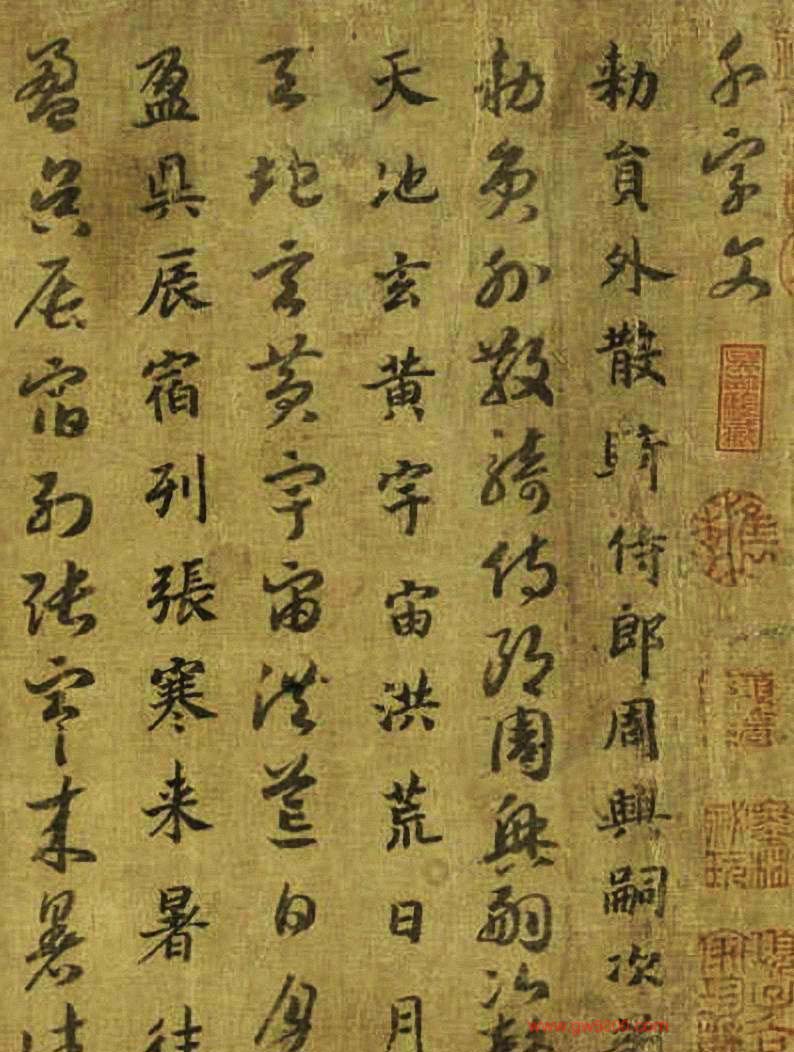 千字文
勅員外散騎侍郎周興嗣次
勅員外散騎侍郎周興嗣次韻
天地玄黃宇宙洪荒日月
天地玄黃宇宙洪荒日月
盈昃辰宿列張寒来暑往
盈昃辰宿列張寒来暑往